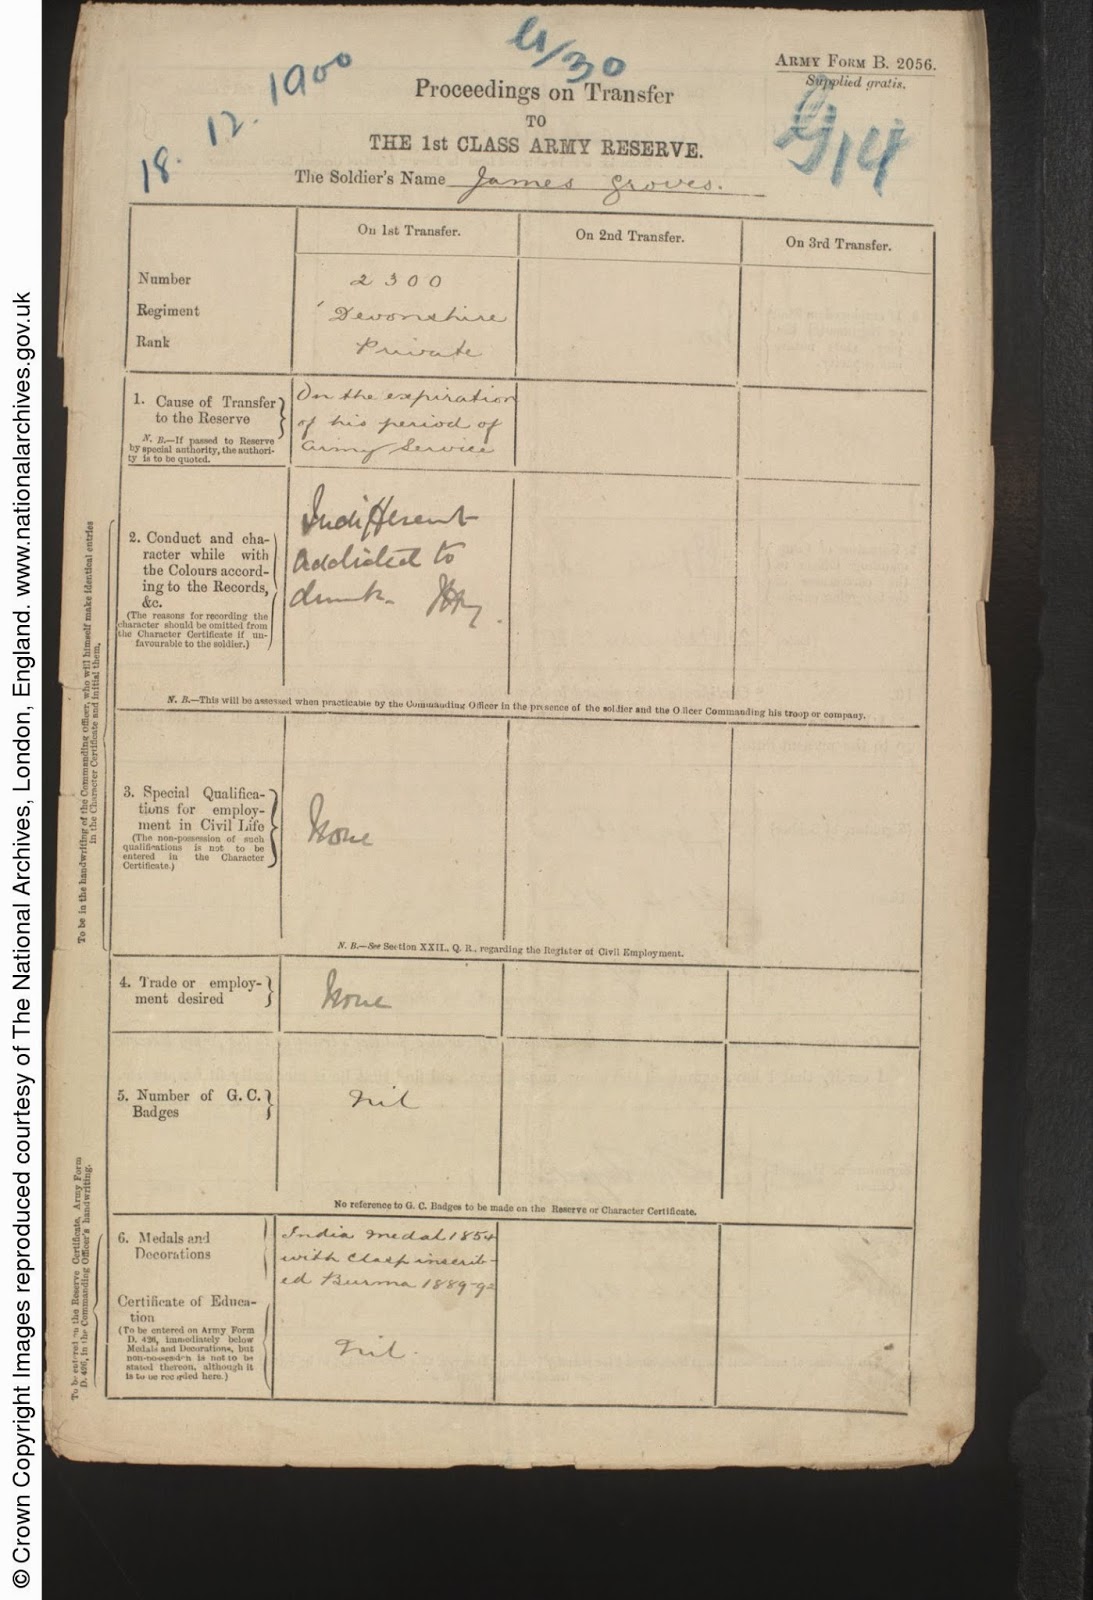 © Crown Copyright Images reproduced courtesy of The National Archives, London, England. www.nationalarchives.gov.uk
18. 12. 1900
G/30
ARMY FORM B. 2056.
Supplied gratis.
G/14
Proceedings on Transfer
TO
THE 1st CLASS ARMY RESERVE.
The Soldier's Name James Groves.
On 1st Transfer.
On 2nd Transfer.
On 3rd Transfer.
Number 2300
Regiment Devonshire
Rank Private
1. Cause of Transfer
to the Reserve
N. B.—If passed to Reserve
by special authority, the authori-
ty is to be quoted.
On the expiration
of his period of
Army Service
2. Conduct and cha-
racter while with
the Colours accord-
ing to the Records,
&c.
(The reasons for recording the
character should be omitted from
the Character Certificate if un-
favourable to the soldier.)
Indifferent
addicted to
drink.
N. B.—This will be assessed when practicable by the Commanding Officer in the presence of the soldier and the Officer Commanding his troop or company.
To be in the handwriting of the Commanding Officer, who will himself make identical entries
in the Character Certificate and initial them.
3. Special Qualifica-
tions for employ-
ment in Civil Life
(The non-possession of such
qualifications is not to be
entered in the Character
Certificate.)
None
N. B.—See Section XXII., Q. R., regarding the Register of Civil Employment.
4. Trade or employ-
ment desired
None
5. Number of G. C.
Badges
Nil
No reference to G. C. Badges to be made on the Reserve or Character Certificate.
To be entered on the Reserve Certificate, Army Form
D. 426, in the Commanding Officer's handwriting.
6. Medals and
Decorations
India Medal 1854
with Clasp inscrib-
ed Burma 1889-92
Certificate of Educa-
tion
(To be entered on Army Form
D. 426, immediately below
Medals and Decorations, but
non-possession is not to be
stated thereon, although it
is to be recorded here.)
Nil.